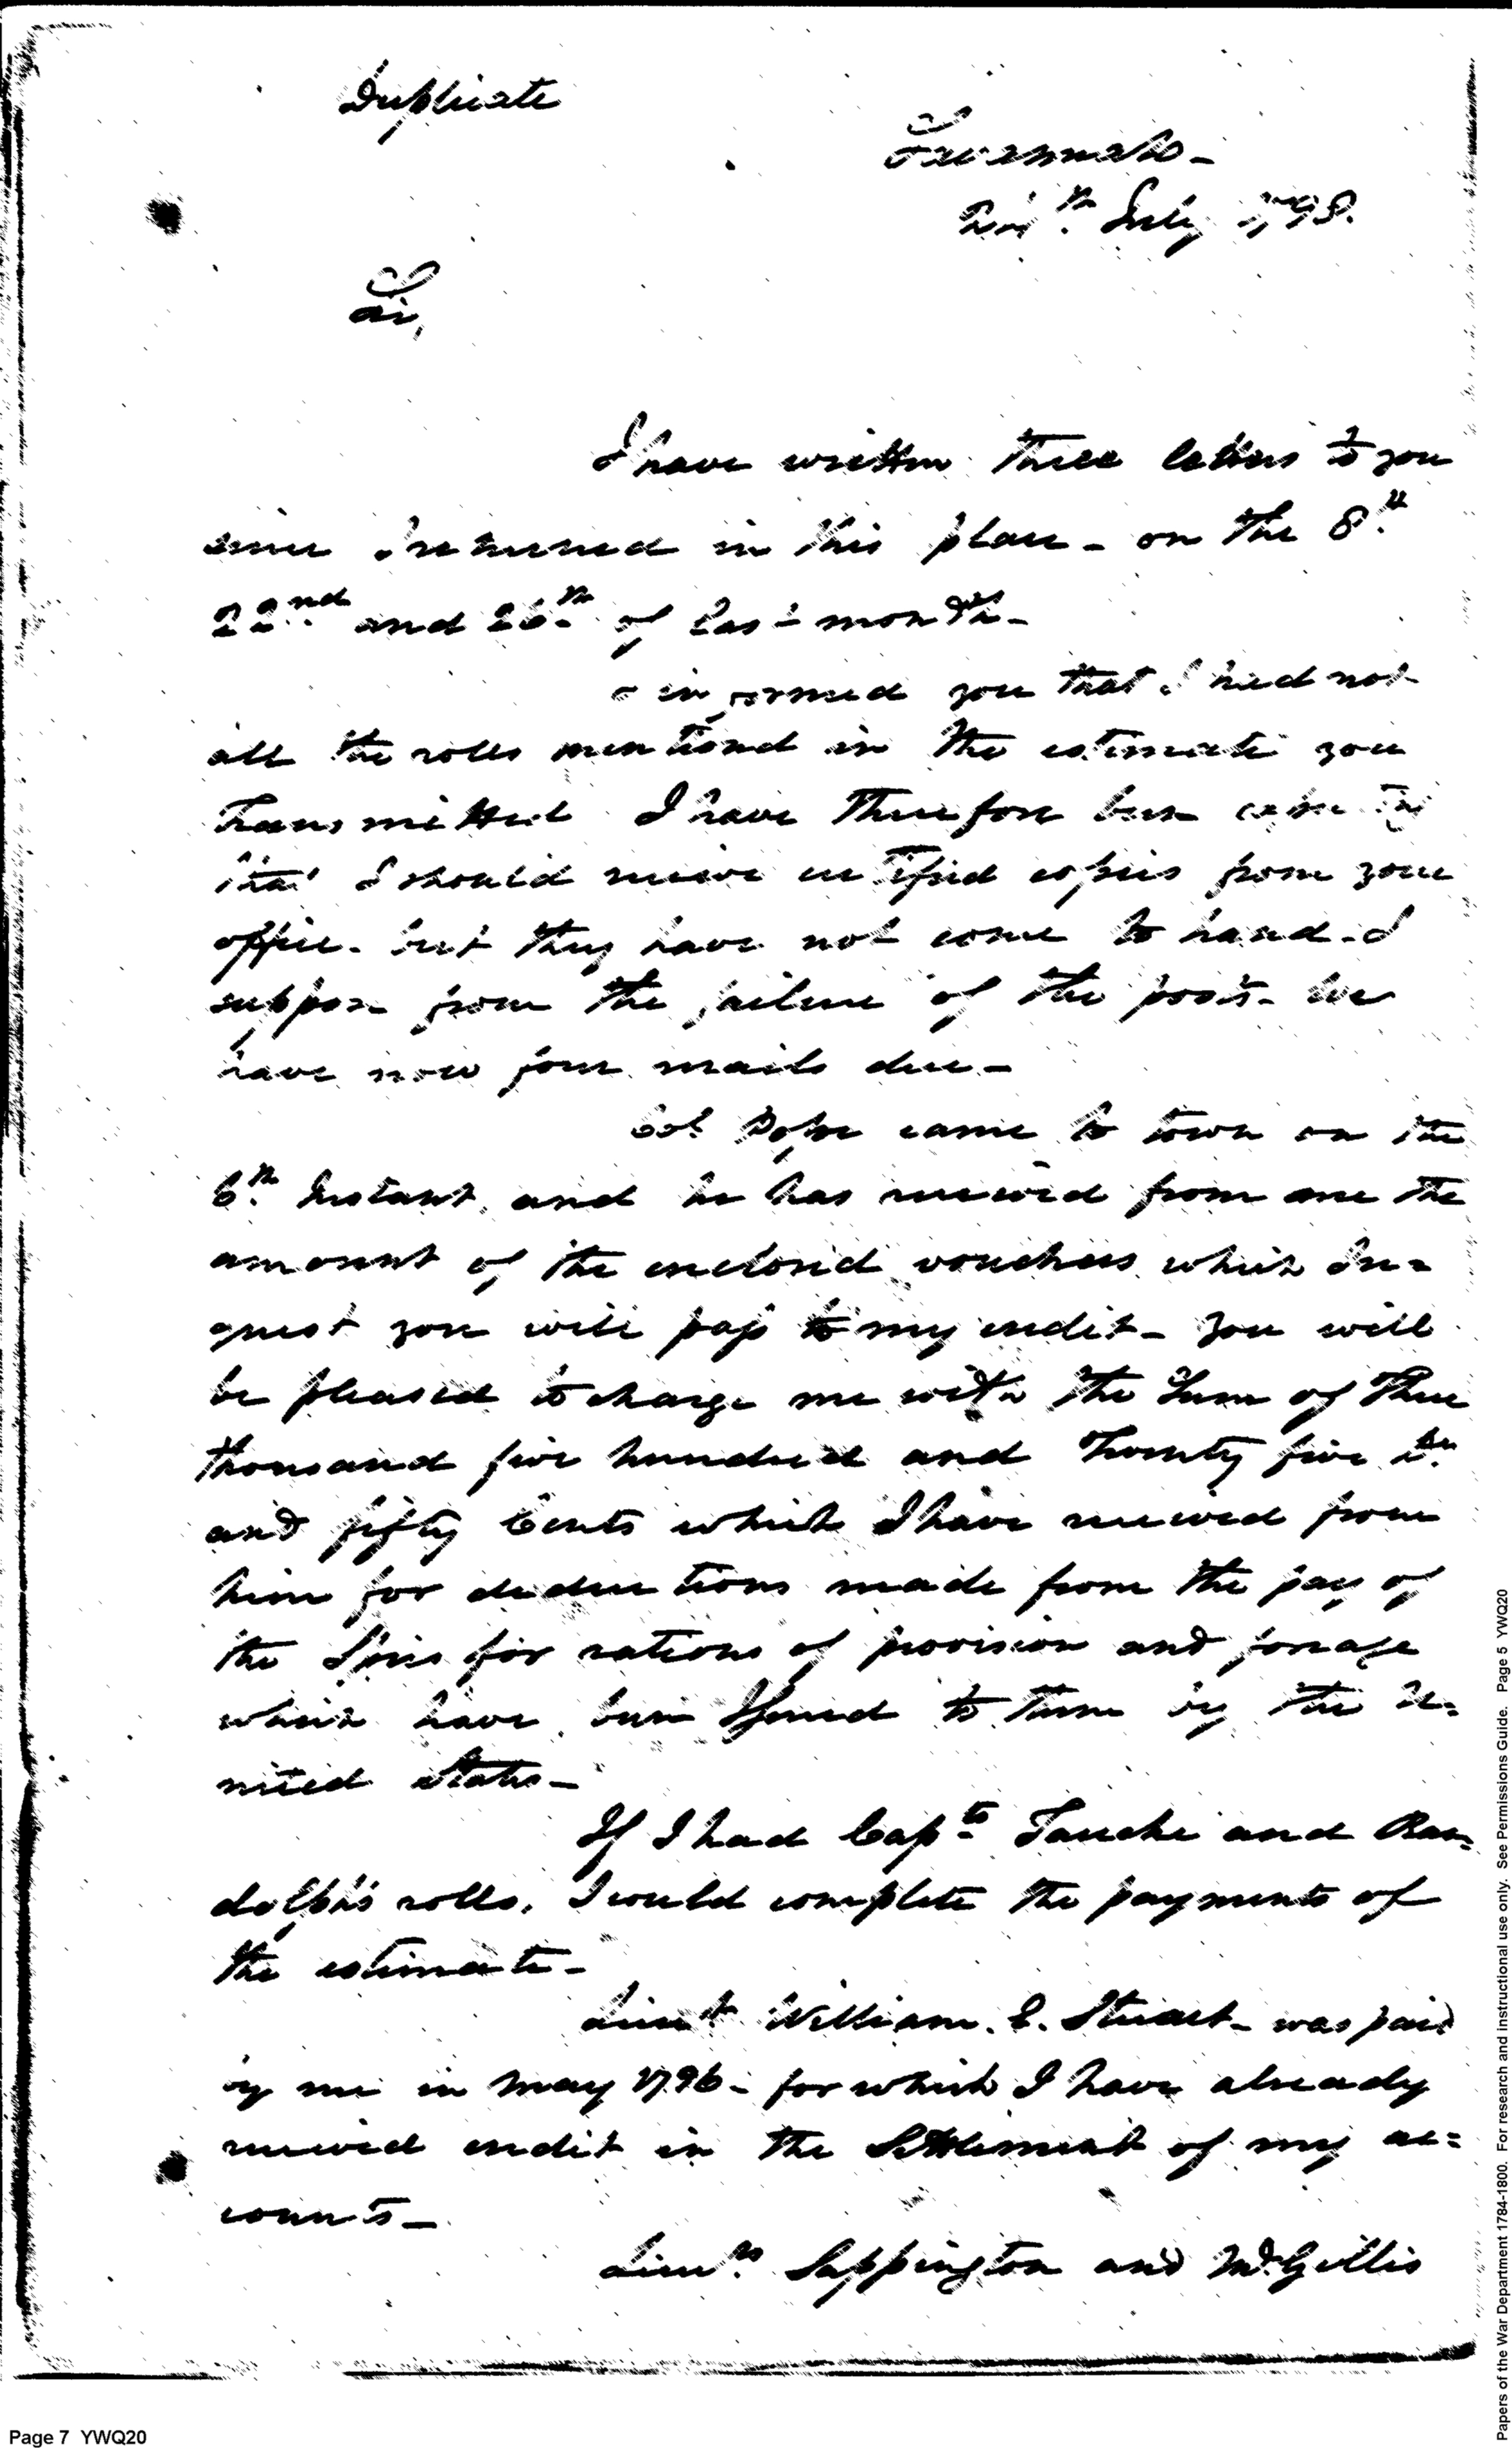 Duplicate
Savannah -
July 1798.
Sir,
I have written three letters to you
since I returned in this place - on the 8th
22nd and 26th of last month -
I informed you that I had not
all the rolls mentiond in the estimate you
transmitted I have therefore been
that I should receive certified copies from your
office - but they have not come to hand - I
suppose from the failure of the posts - We
have now four mails due -
Col Pope came to town on the
6th Instant, and he has received from me the
amount of the enclosed vouchers which I re=
quest you will pass to my credit - You will
be pleased to charge me with the Sum of Three
thousand five hundred and Twenty five
and fifty Cents which I have received from
him for deductions made from the pay of
the for rations of provision and forage
which have been Issued to them by the U=
nited States -
If I had Capts Fauche and Ran=
dolph's rolls, I would complete the payments of
the estimate -
Lieut William. E. Stuart - was paid
by me in may 1796 - for which I have already
received credit in the Settlement of my ac=
counts -
Lieuts Sappington and McGillis
Page 7 YWQ20
Papers of the War Department 1784-1800. For research and instructional use only. See Permissions Guide. Page 5 YWQ20